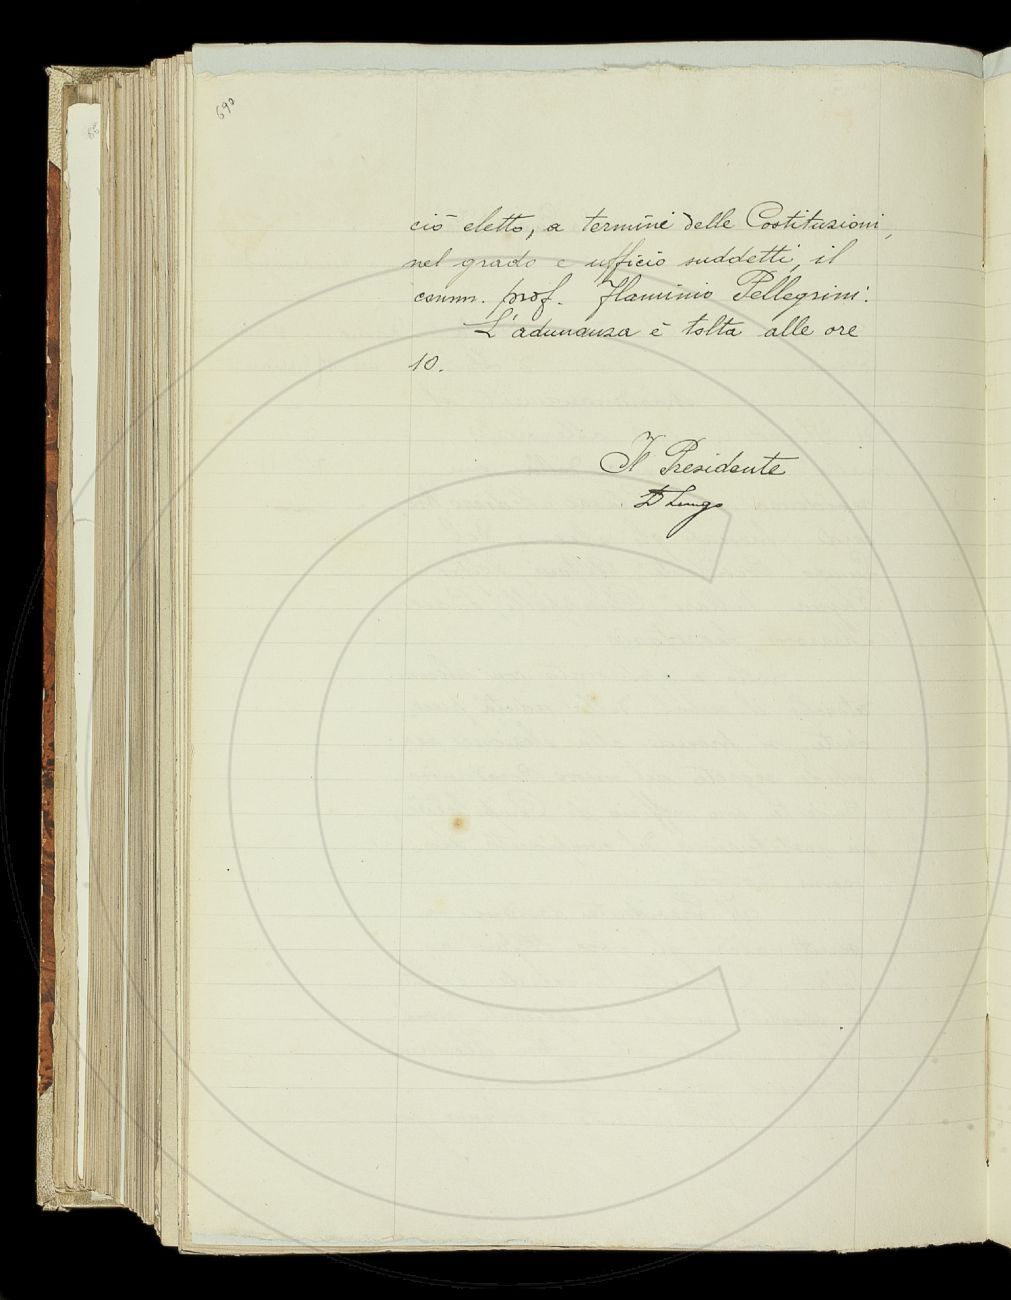 690
ciò eletto, a termini delle Costituzioni,
nel grado e ufficio suddetti, il
comm. prof. Flaminio Pellegrini.
L'adunanza è tolta alle ore
10.
Il Presidente
D Lungo